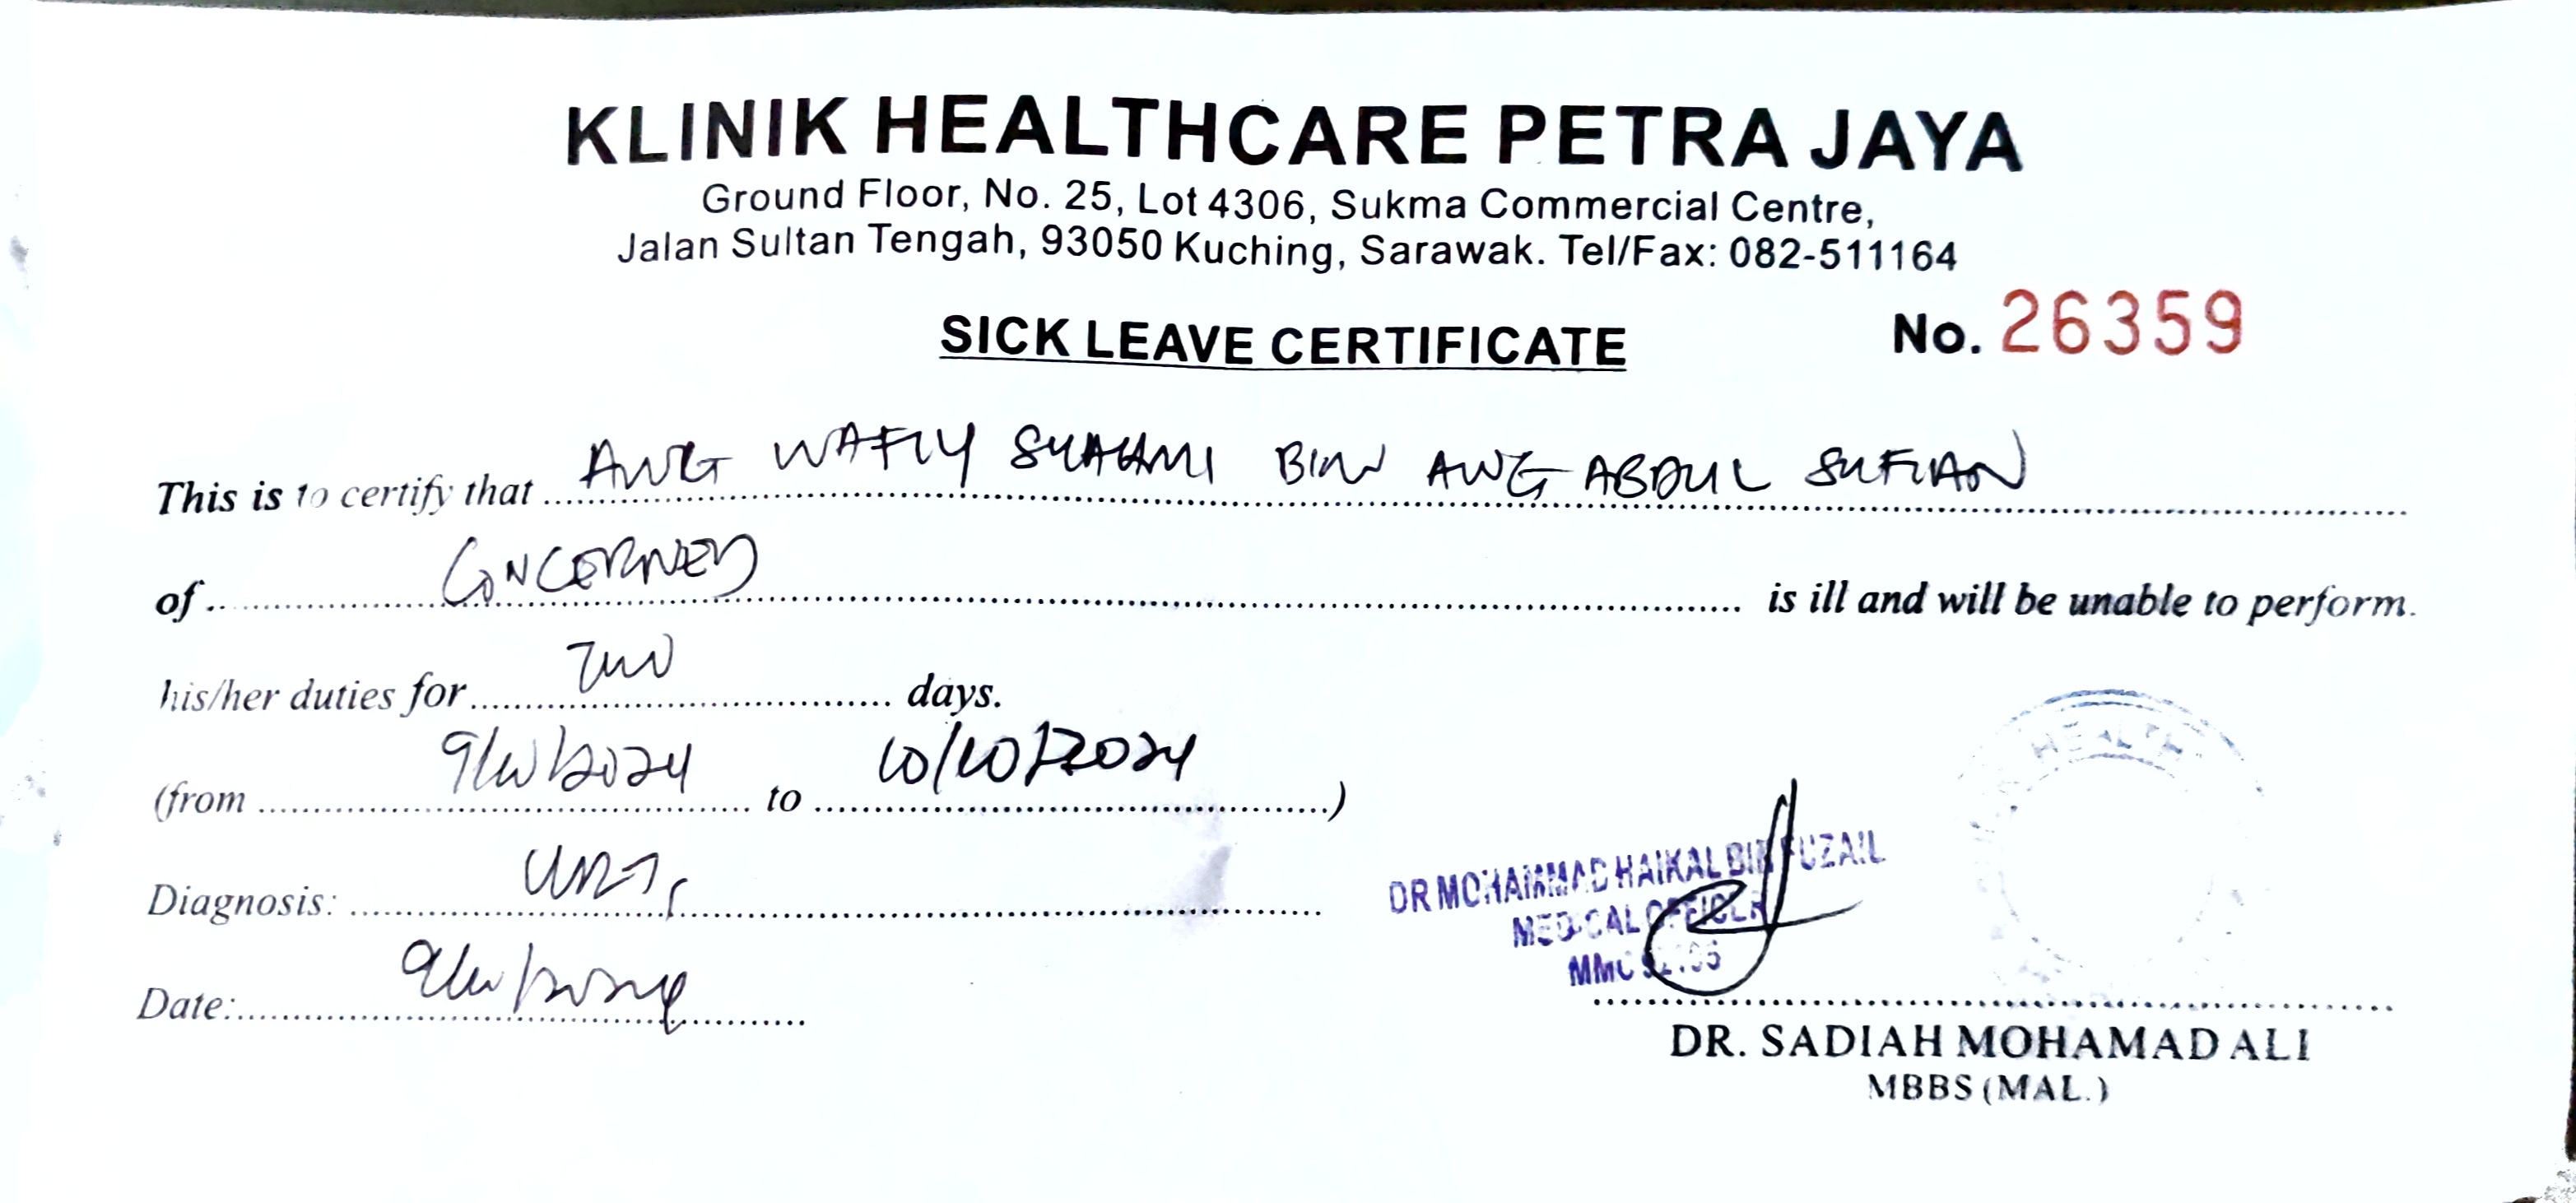 KLINIK HEALTHCARE PETRA JAYA
Ground Floor, No. 25, Lot 4306, Sukma Commercial Centre,
Jalan Sultan Tengah, 93050 Kuching, Sarawak. Tel/Fax: 082-511164
SICK LEAVE CERTIFICATE
No. 26359
This is to certify that AWG WAFIY SYAHMI BIN AWG ABDUL SUFIAN
of CONCERNED is ill and will be unable to perform.
his/her duties for TWO days.
(from 9/10/2024 to 10/10/2024)
Diagnosis: URTI
Date: 9/10/2024
HEALTH
DR MOHAMMAD HAIKAL BIN FUZAIL
MEDICAL OFFICER
MMC
DR. SADIAH MOHAMAD ALI
MBBS (MAL.)